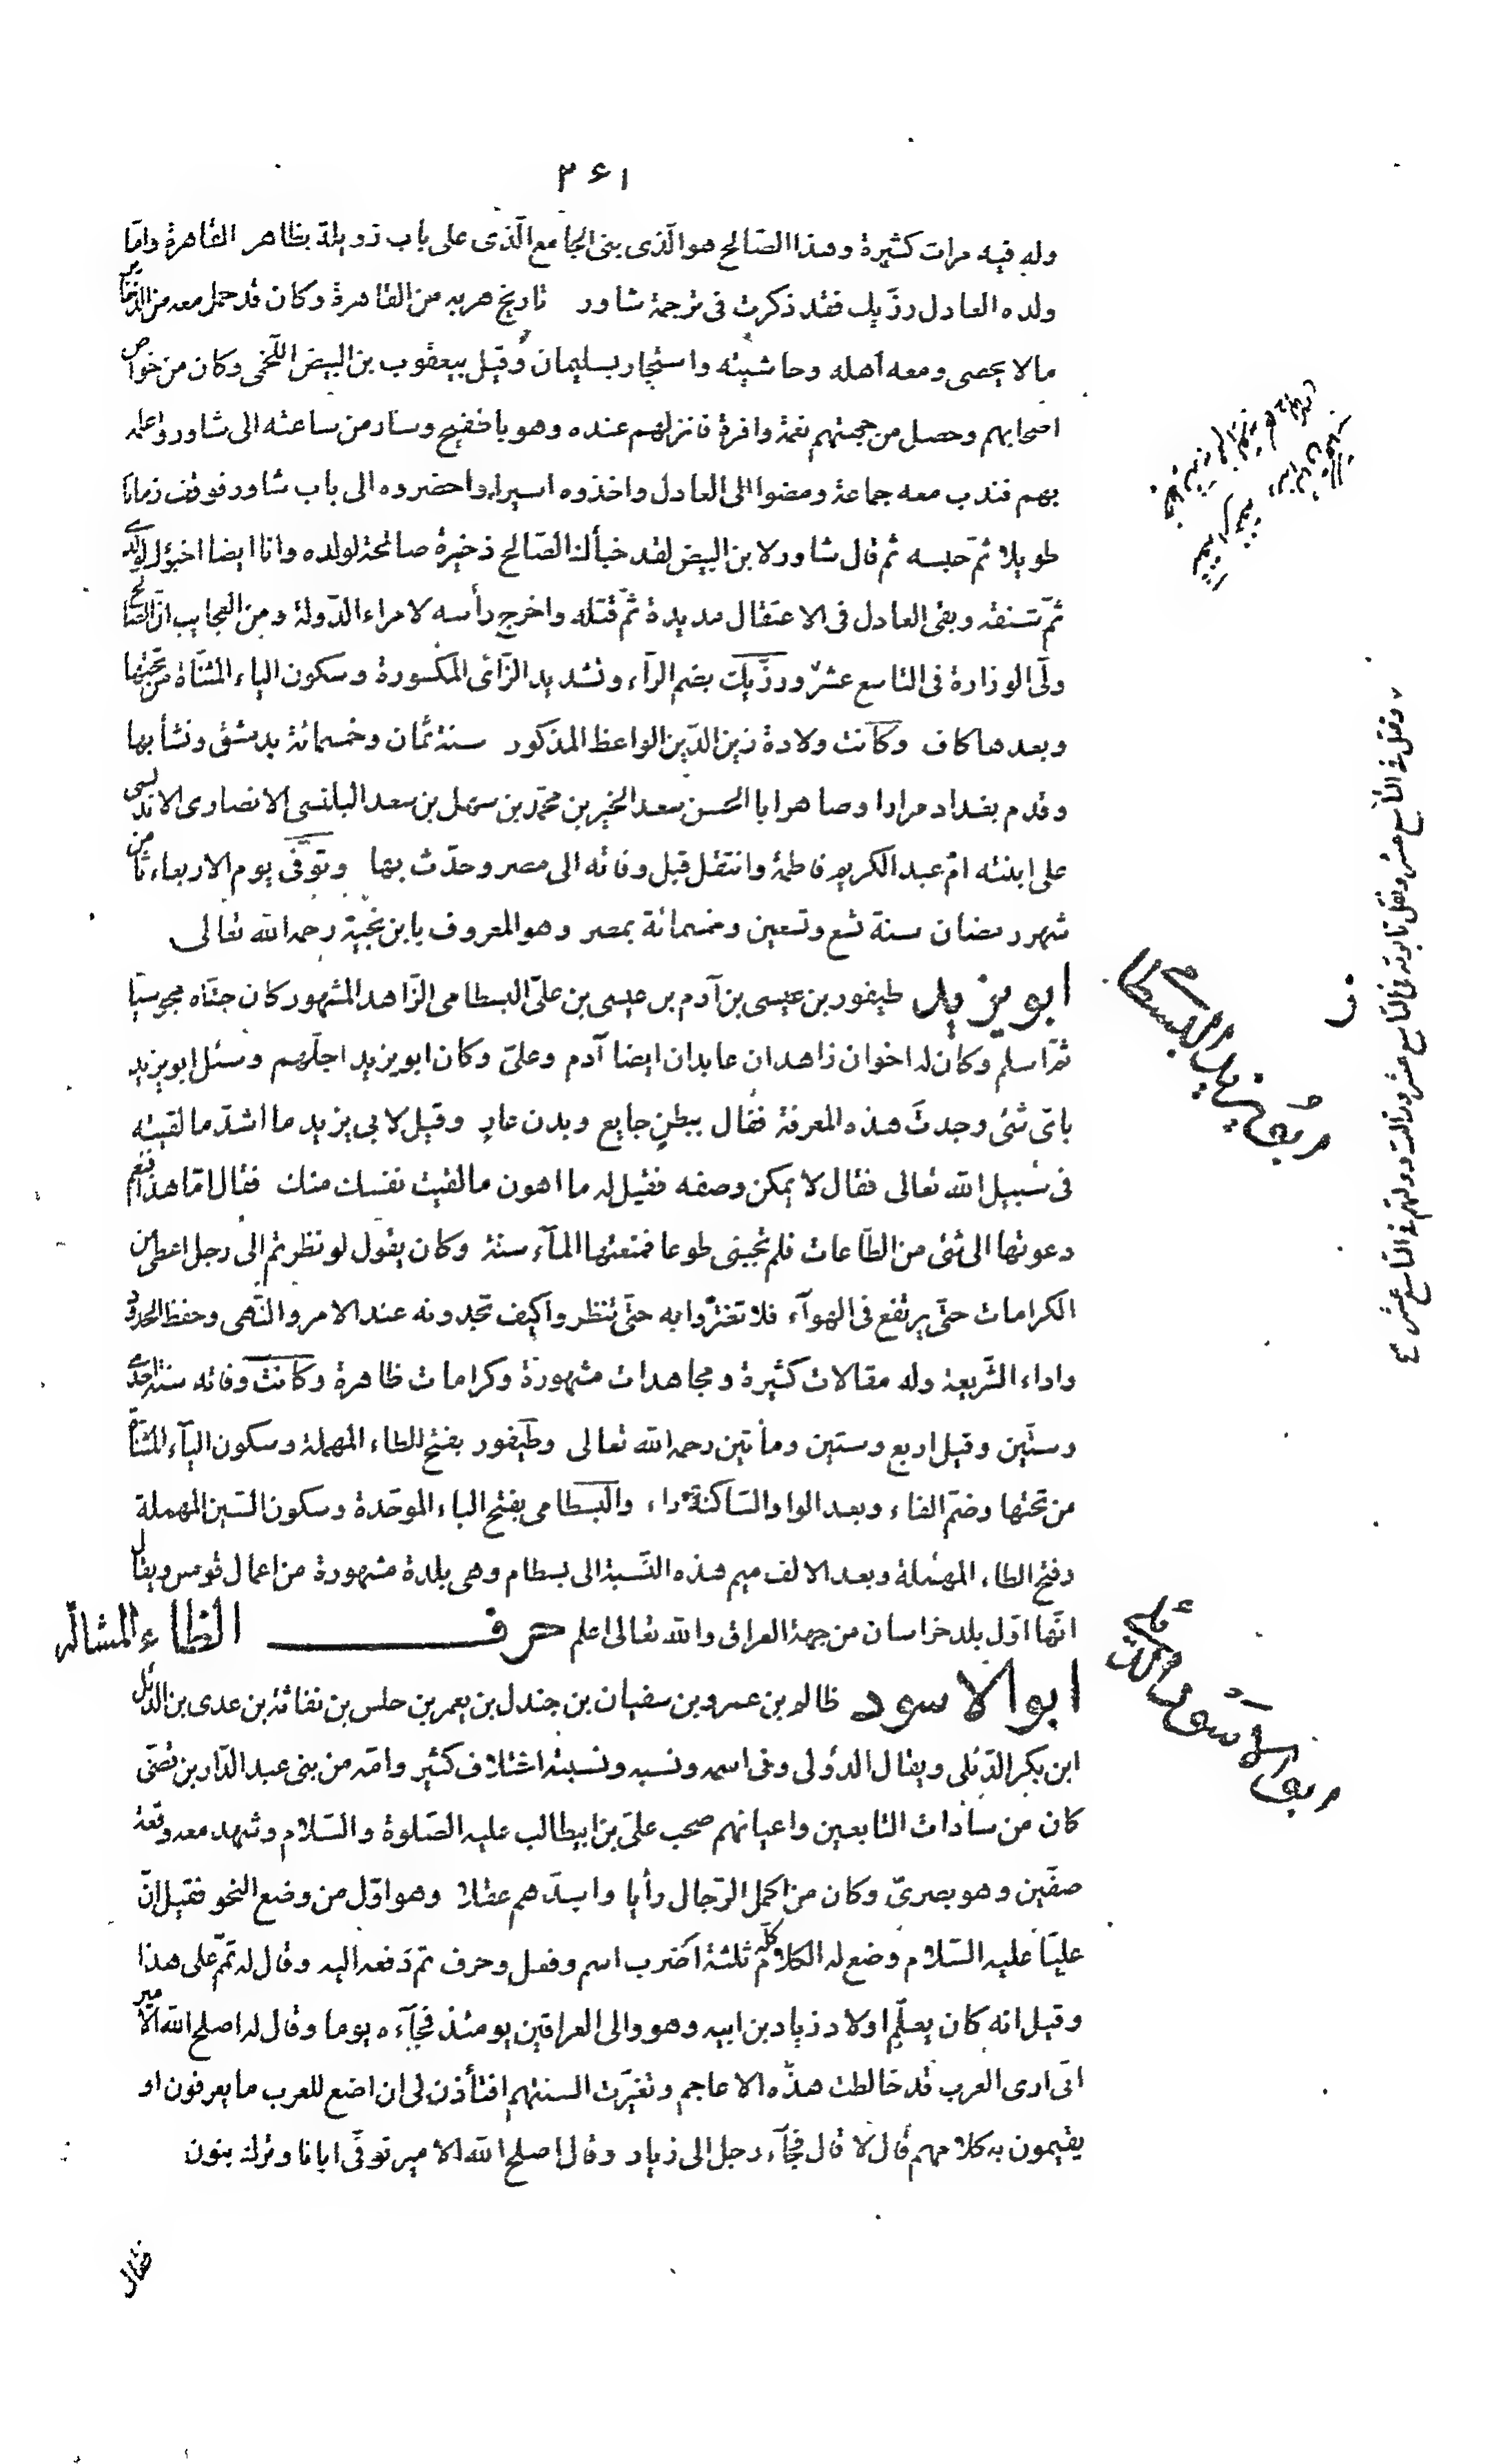 ٢٤١
وله فيه مرات كثيرة وهذا الصّالح هو الّذى بنى الجامع الّذى على باب زويلة بظاهر القاهرة وامّا
ولده العادل رزّيك فقد ذكرت فى ترجمة شاور تاريخ هربه من القاهرة وكان قد حمل معه من الذّخاير
ما لا يحصى ومعه اهله وحاشيته واستجار بسليمان وقيل بيعقوب بن البيض اللّخمى وكان من خواص
اصحابهم وحصل من جهتهم نعمة وافرة فانزلهم عنده وهو باطفيح وسار من ساعته الى شاور واعلمه
بهم فندب معه جماعة ومضوا الى العادل واخذوه اسيرا واحضروه الى باب شاور فوقف زمانا
طويلا ثمّ حبسه ثم قال شاور لابن البيض لقد خبألنا الصّالح ذخيرة صالحة لولده وانا ايضا اخبؤك لولدى
ثمّ شنقه وبقى العادل فى الاعتقال مديدة ثمّ قتله واخرج رأسه لامراء الدّولة ومن العجايب انّ الصّالح
ولّى الوزارة فى التاسع عشر ورزّيك بضم الرآء وتشديد الزّاى المكسورة وسكون الياء المثنّاة من تحتها
وبعدها كاف وكانت ولادة زين الدّين الواعظ المذكور سنة ثمان وخمسمائة بدمشق ونشأ بها
وقدم بغداد مرارا وصاهر ابا الحسن سعد الخير بن محمّد بن سهل بن سعد البلنسى الانصارى الاندلسى
على ابنته امّ عبد الكريم فاطمة وانتقل قبل وفاته الى مصر وحدّث بها وتوفّى يوم الاربعاء ثامن
شهر رمضان سنة تسع وتسعين وخمسمائة بمصر وهو المعروف بابن نجيّة رحمه الله تعالى
ابو يزيد طيفور بن عيسى بن آدم بن عيسى بن علىّ البسطامى الزّاهد المشهور كان جدّه مجوسيّا
ثمّ اسلم وكان له اخوان زاهدان عابدان ايضا آدم وعلىّ وكان ابو يزيد اجلّهم وسئل ابو يزيد
باىّ شئ وجدت هذه المعرفة فقال ببطن جايع وبدن عار وقيل لابى يزيد ما اشدّ ما لقيته
فى سبيل الله تعالى فقال لا يمكن وصفه فقيل له ما اهون ما لقيت نفسك منك فقال امّا هذا فنعم
دعوتها الى شئ من الطّاعات فلم تجبنى طوعا فمنعتها المآء سنة وكان يقول لو نظرتم الى رجل اعطى من
الكرامات حتّى يرتفع فى الهوآء فلا تغترّوا به حتّى تنظروا كيف تجدونه عند الامر والنّهى وحفظ الحدود
واداء الشّريعة وله مقالات كثيرة ومجاهدات مشهورة وكرامات ظاهرة وكانت وفاته سنة احدى
وستّين وقيل اربع وستين ومأتين رحمه الله تعالى وطيفور بفتح الطاء المهملة وسكون اليآء المثنّاة
من تحتها وضمّ الفاء وبعد الواو السّاكنة راء والبسطامى بفتح الباء الموحّدة وسكون السّين المهملة
وفتح الطاء المهملة وبعد الالف ميم هذه النّسبة الى بسطام وهى بلدة مشهورة من اعمال قومس ويقال
انّها اوّل بلد خراسان من جهة العراق والله تعالى اعلم حرف الظاء المشالة
ابو الاسود ظالم بن عمرو بن سفيان بن جندل بن يعمر بن حلس بن نفاثة بن عدى بن الدّئل
ابن بكر الدّئلى ويقال الدؤلى وفى اسمه ونسبه ونسبته اختلاف كثير وامّه من بنى عبد الدّار بن قصىّ
كان من سادات التابعين واعيانهم صحب علىّ بن ابيطالب عليه الصّلوة والسّلام وشهد معه وقعة
صفّين وهو بصرىّ وكان من اكمل الرّجال رأيا واسدّهم عقلا وهو اوّل من وضع النحو فقيل انّ
عليّا عليه السّلام وضع له الكلام كلّه ثلثة اضرب اسم وفعل وحرف ثم دفعه اليه وقال له تمّم على هذا
وقيل انه كان يعلّم اولاد زياد بن ابيه وهو والى العراقين يومئذ فجآءه يوما وقال له اصلح الله الامير
انّى ارى العرب قد خالطت هذه الاعاجم وتغيّرت السنتهم افتأذن لى ان اضع للعرب ما يعرفون او
يقيمون به كلامهم قال لا قال فجآء رجل الى زياد وقال اصلح الله الامير توفّى ابانا وترك بنون
فقال
ابو يزيد البسطامى
ابو الاسود الدئلى
وقتل فى التاسع عشر ونقل تابوته فى التاسع عشر وزالت دولتهم فى التاسع عشر